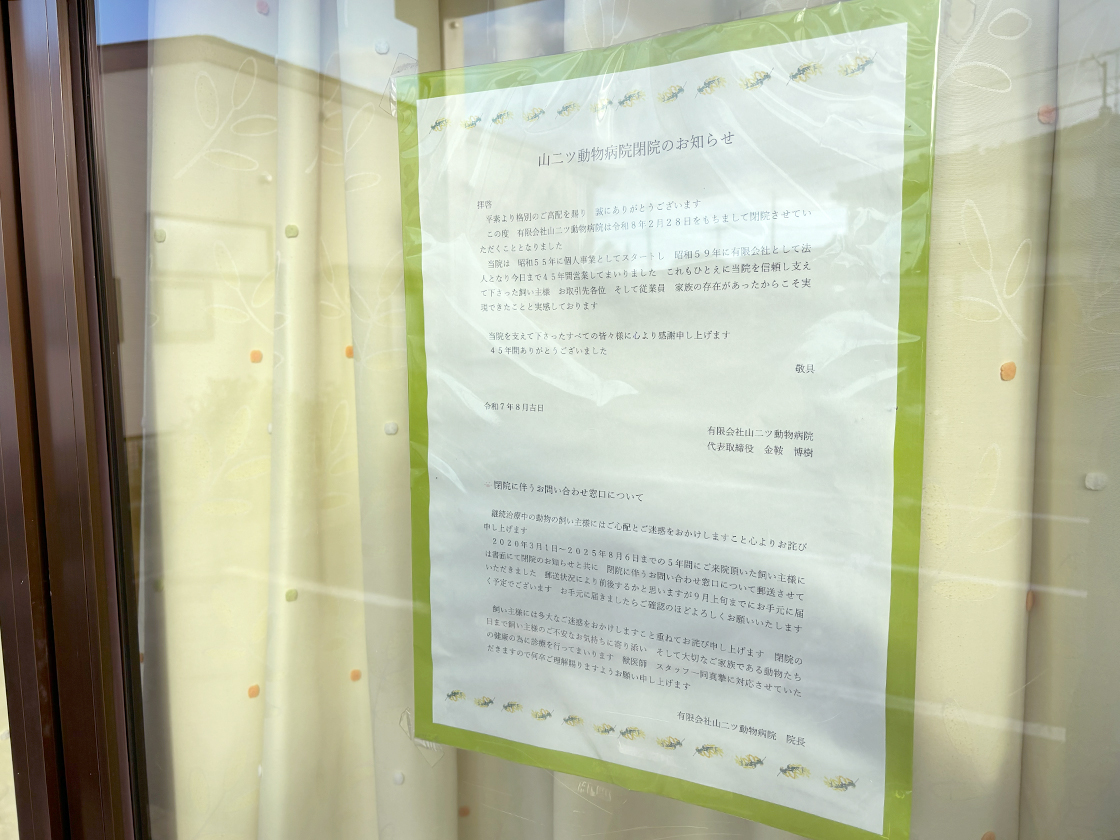 山二ツ動物病院閉院のお知らせ
拝啓
平素より格別のご高配を賜り　誠にありがとうございます
この度　有限会社山二ツ動物病院は令和８年２月２８日をもちまして閉院させてい
ただくこととなりました
当院は　昭和５５年に個人事業としてスタートし　昭和５９年に有限会社として法
人となり今日まで４５年間営業してまいりました　これもひとえに当院を信頼し支え
て下さった飼い主様　お取引先各位　そして従業員　家族の存在があったからこそ実
現できたことと実感しております
当院を支えて下さったすべての皆々様に心より感謝申し上げます
４５年間ありがとうございました
敬具
令和７年８月吉日
有限会社山二ツ動物病院
代表取締役　金鞍　博樹
－閉院に伴うお問い合わせ窓口について
継続治療中の動物の飼い主様にはご心配とご迷惑をおかけしますこと心よりお詫び
申し上げます
２０２０年３月１日～２０２５年８月６日までの５年間にご来院頂いた飼い主様に
は書面にて閉院のお知らせと共に　閉院に伴うお問い合わせ窓口について郵送させて
いただきました　郵送状況により前後するかと思いますが９月上旬までにお手元に届
く予定でございます　お手元に届きましたらご確認のほどよろしくお願いいたします
飼い主様には多大なご迷惑をおかけしますこと重ねてお詫び申し上げます　閉院の
日まで飼い主様のご不安なお気持ちに寄り添い　そして大切なご家族である動物たち
の健康の為に診療を行ってまいります　獣医師　スタッフ一同真摯に対応させていた
だきますので何卒ご理解賜りますようお願い申し上げます
有限会社山二ツ動物病院　院長